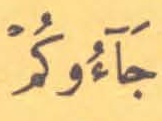 جَآءُوكُمْ